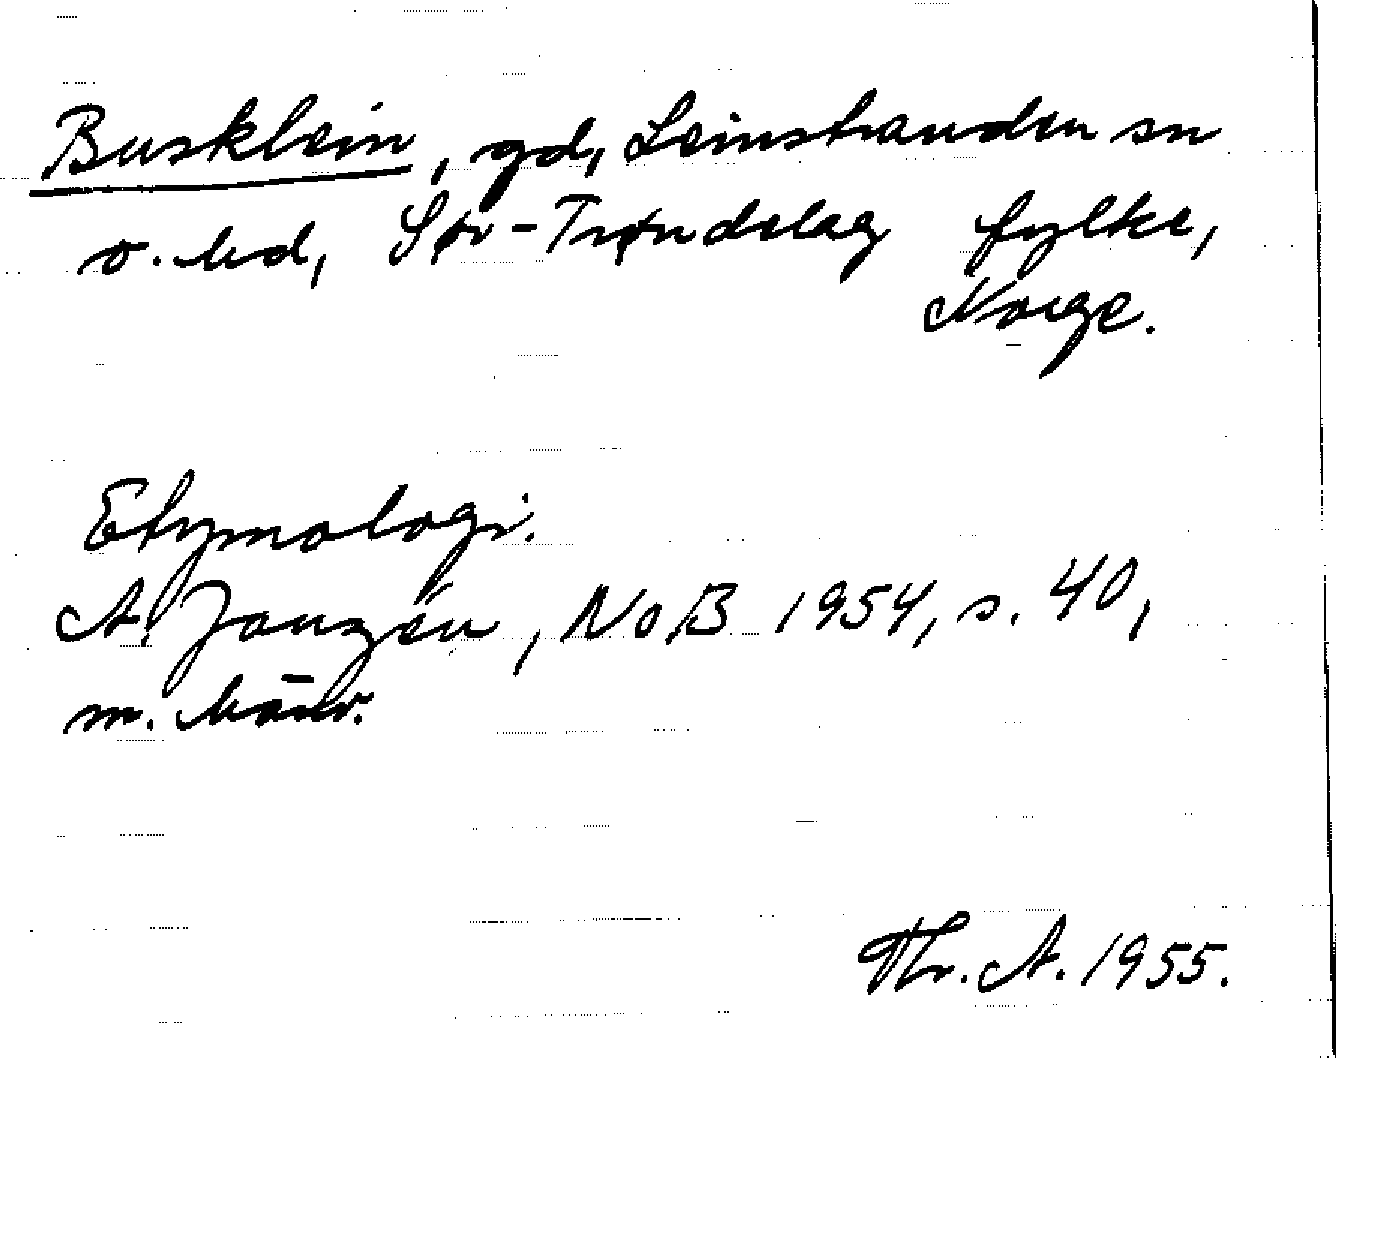 Busklein, gd, Leinstranden sn
o. hd, Sør-Trøndelag fylke,
Norge.
Etymologi.
A. Janzén, NoB 1954, s. 40,
m. hänv.
Th. A. 1955.